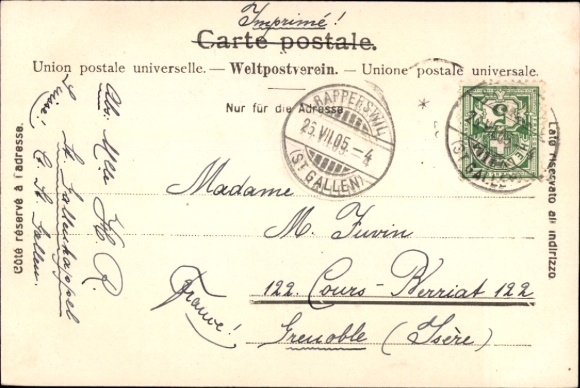 Imprimé!
Carte postale.
Union postale universelle. — Weltpostverein. — Unione postale universale.
Nur für die Adresse
RAPPERSWIL
25.VII.05.-4
(ST GALLEN)
HELVETIA
5
Madame
M. Juvin
122. Cours-Berriat 122
Grenoble (Isère)
France!
Côté réservé à l'adresse.
Lato riservato all' indirizzo
Abs. Mlle H. R.
St. Gallenkappel
Suisse! C. St. Gallen.